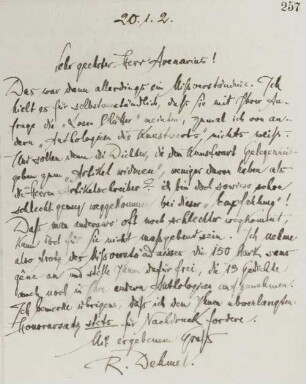 257
20.1.2.
Sehr geehrter Herr Avenarius!
Das war dann allerdings ein Missverständnis. Ich
hielt es für selbstverständlich, dass Sie mit Ihrer An-
frage die „losen Blätter" meinten, zumal ich von an-
dern „Anthologien des Kunstwarts" nichts weiss.
sollen denn die Dichter, die dem Kunstwart
gegen „Artikel widmen", weniger davon haben als
die Herren Artikelschreiber? ich bin doch sowieso schon
schlecht genug weggekommen bei dieser „Empfehlung"!
Dass man anderswo oft noch schlechter wegkommt,
kann doch für Sie nicht massgebend sein. Ich nehme
also trotz des Missverständnisses die 150 Mark
an und stelle Ihnen dafür frei, die 13 Gedichte
auch noch in Ihre andere Anthologie aufzunehmen.
Ich bemerke übrigens, dass ich den Ihnen abverlangten
Honorarsatz stets für Nachdruck fordere.
Mit ergebenem Gruss
R. Dehmel.